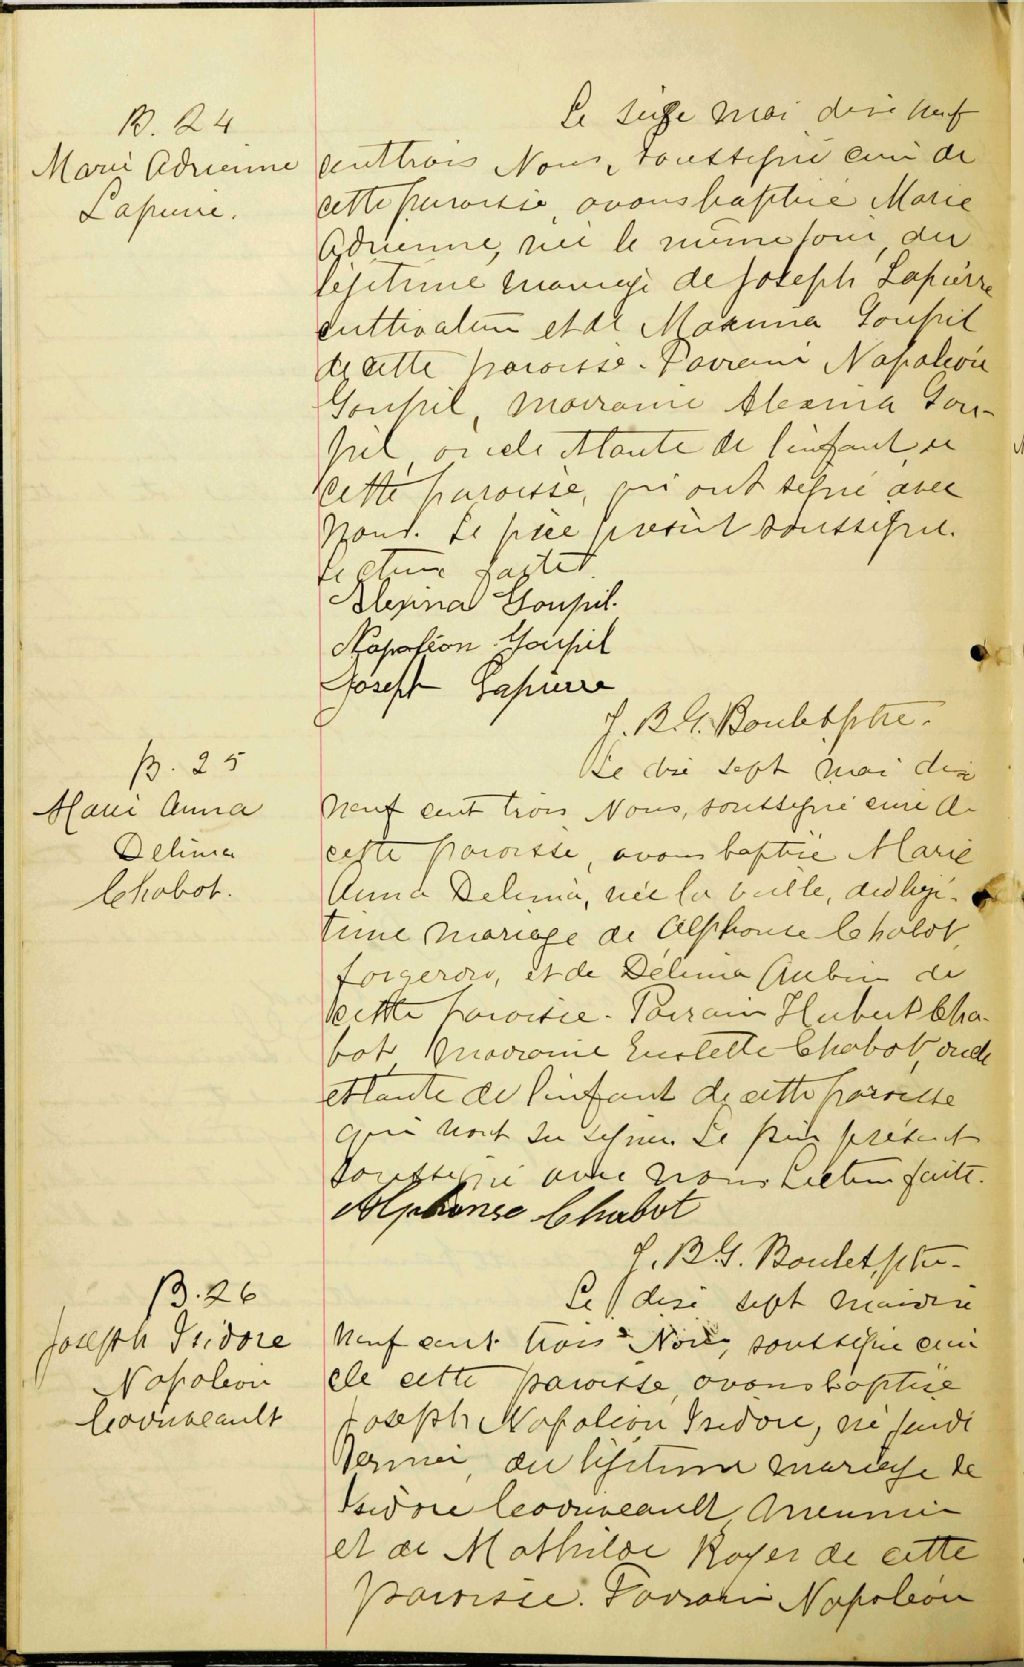 B. 24
Marie Adrienne
Lapierre.
Le seize mai dix neuf
cent trois Nous, soussigné curé de
cette paroisse, avons baptisé Marie
Adrienne, née le même jour, du
légitime mariage de Joseph Lapierre
cultivateur et de Maxima Goupil
de cette paroisse. Parrain Napoléon
Goupil, marraine Alexina Gou-
pil, oncle et tante de l'enfant de
cette paroisse, qui ont signé avec
nous. Le père présent soussigné.
Lecture faite.
Alexina Goupil.
Napoléon Goupil
Joseph Lapierre
J. B. G. Boulet ptre.
B. 25
Marie Anna
Delima
Chabot.
Le dix sept mai dix
neuf cent trois Nous, soussigné curé de
cette paroisse, avons baptisé Marie
Anna Delima, née la veille, du légi-
time mariage de Alphonse Chabot,
forgeron, et de Délima Aubin de
cette paroisse. Parrain Hubert Cha-
bot, marraine Chabot, oncle
et tante de l'enfant de cette paroisse
qui n'ont su signer. Le père présent
soussigné avec nous Lecture faite.
Alphonse Chabot
J. B. G. Boulet, ptre.
B. 26
Joseph Isidore
Napoléon
Le dix sept mai dix
neuf cent trois Nous, soussigné curé
de cette paroisse, avons baptisé
Joseph Napoléon Isidore, né jeudi
dernier, du légitime mariage de
Isidore meunier
et de Mathilde Royer de cette
paroisse. Parrain Napoléon